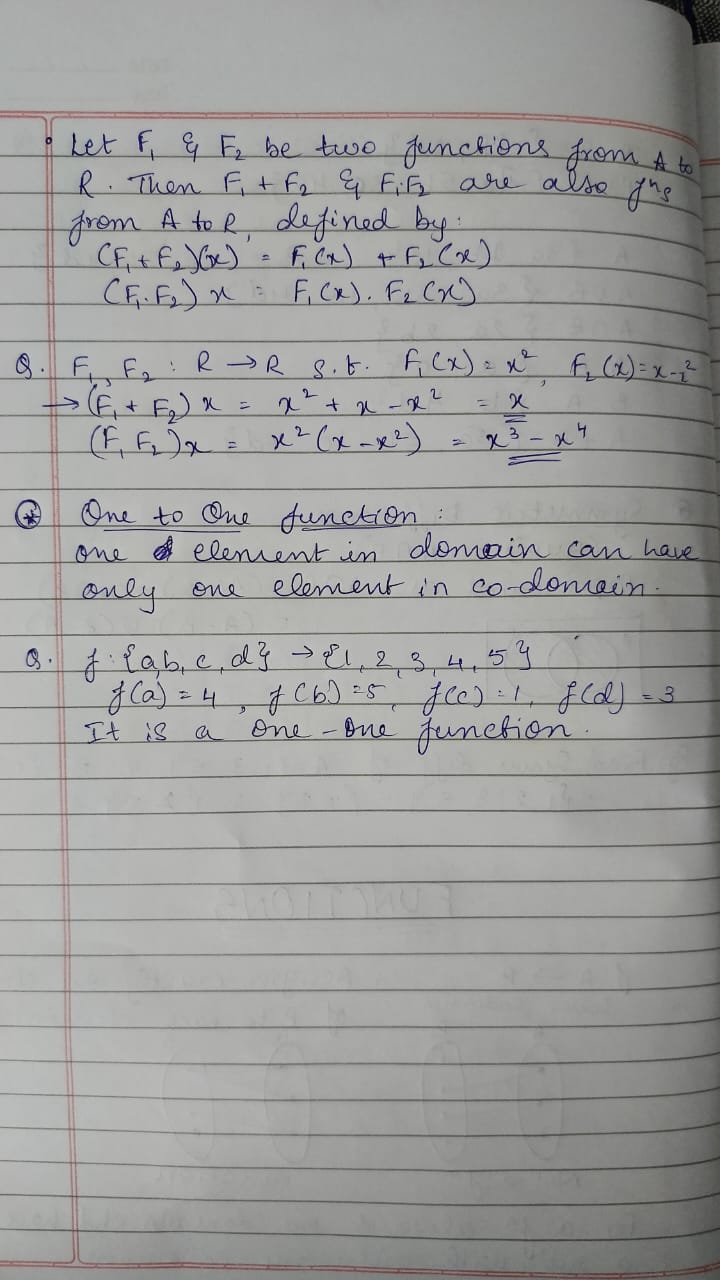 • Let F₁ & F₂ be two functions from A to
R. Then F₁ + F₂ & F₁.F₂ are also fⁿs
from A to R, defined by:
(F₁ + F₂)(x) = F₁(x) + F₂(x)
(F₁.F₂) x = F₁(x). F₂(x)
Q. F₁, F₂ : R → R s.t. F₁(x) = x², F₂(x) = x - x²
→ (F₁ + F₂) x = x² + x - x² = x
(F₁ F₂) x = x² (x - x²) = x³ - x⁴
⊛ One to One function :
one element in domain can have
only one element in co-domain.
Q. f : {a, b, c, d} → {1, 2, 3, 4, 5}
f(a) = 4, f(b) = 5, f(c) = 1, f(d) = 3
It is a One - One function.